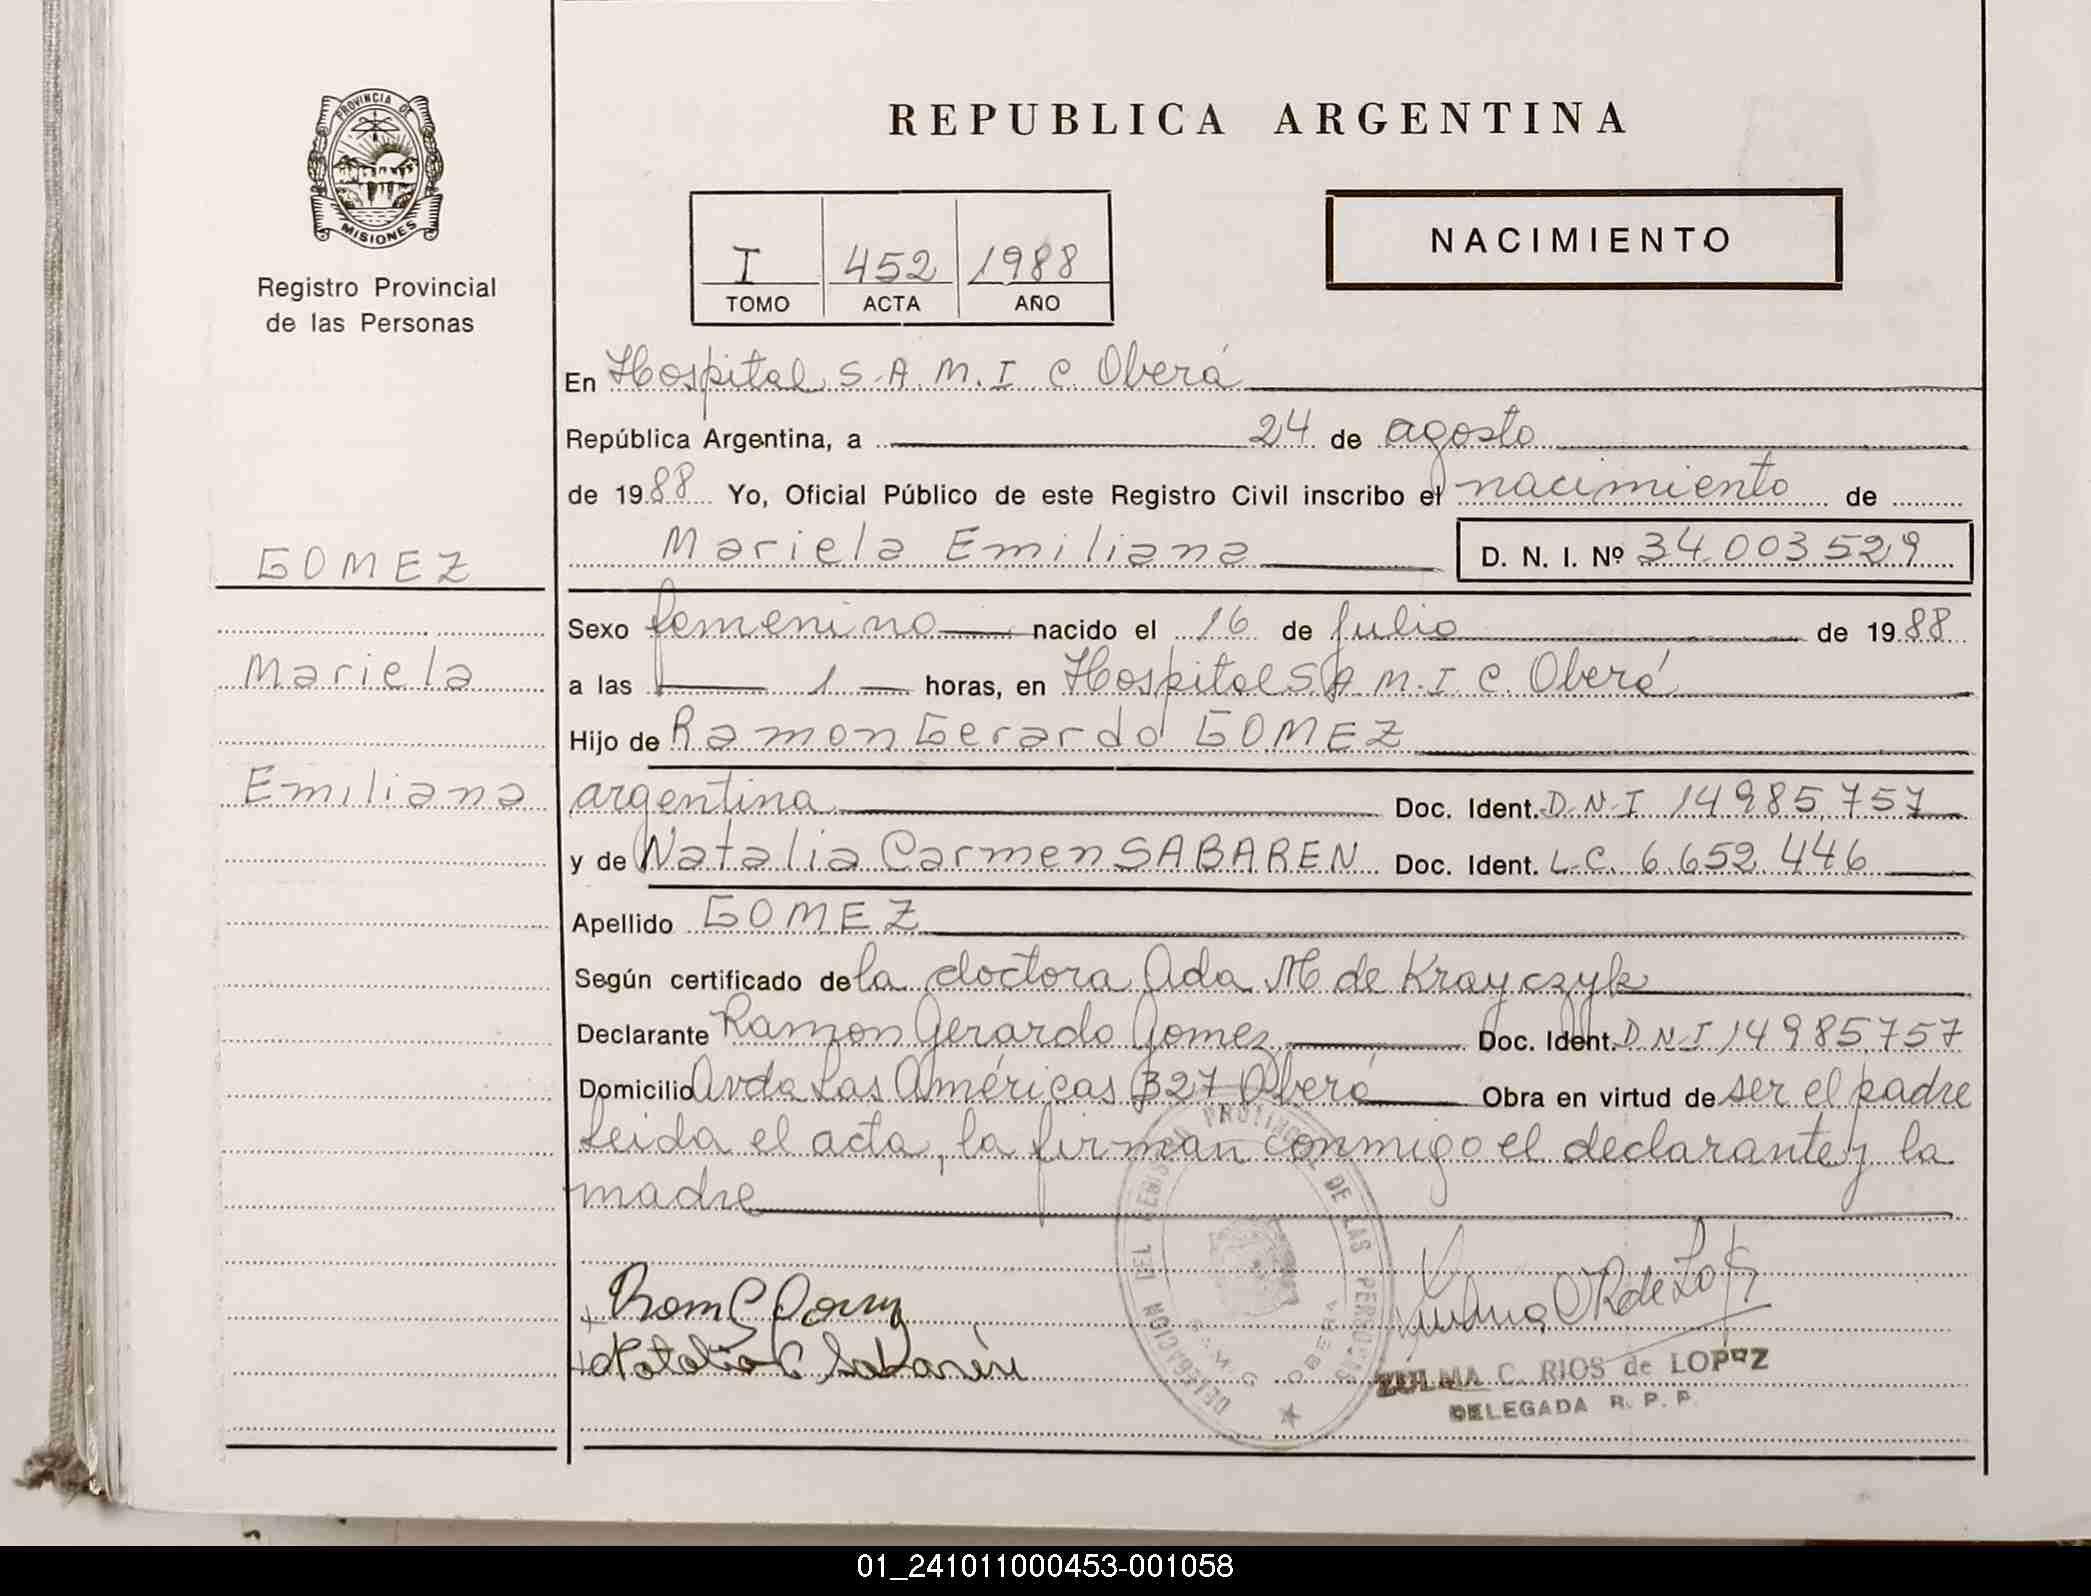 PROVINCIA DE
MISIONES
Registro Provincial
de las Personas
GOMEZ
Mariela
Emiliana
REPUBLICA ARGENTINA
I 452 1988
TOMO ACTA AÑO
NACIMIENTO
En Hospital S.A.M.I C. Oberá
República Argentina, a 24 de agosto
de 1988 Yo, Oficial Público de este Registro Civil inscribo el nacimiento de
Mariela Emiliana D. N. I. Nº 34.003.529
Sexo femenino nacido el 16 de julio de 1988
a las 1 horas, en Hospital S A M.I C. Oberá
Hijo de Ramon Gerardo GOMEZ
argentina Doc. Ident. D.N.I 14985757
y de Natalia Carmen SABAREN Doc. Ident. L.C. 6.652.446
Apellido GOMEZ
Según certificado de la doctora Ada M de Krayczyk
Declarante Ramon Gerardo Gomez Doc. Ident. D N I 14985757
Domicilio Avda Las Américas 327 Oberá Obra en virtud de ser el padre
Leida el acta, la firman conmigo el declarante y la
madre
DELEGACION DEL REGISTRO PROVINCIAL DE LAS PERSONAS
OBERA
Natalia C Sabarén
ZULMA C. RIOS de LOPEZ
DELEGADA R. P. P.
01_241011000453-001058